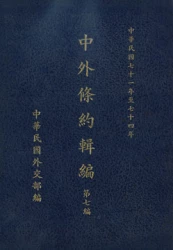 中華民國七十一年至七十四年
中外條約輯編
第七編
中華民國外交部編